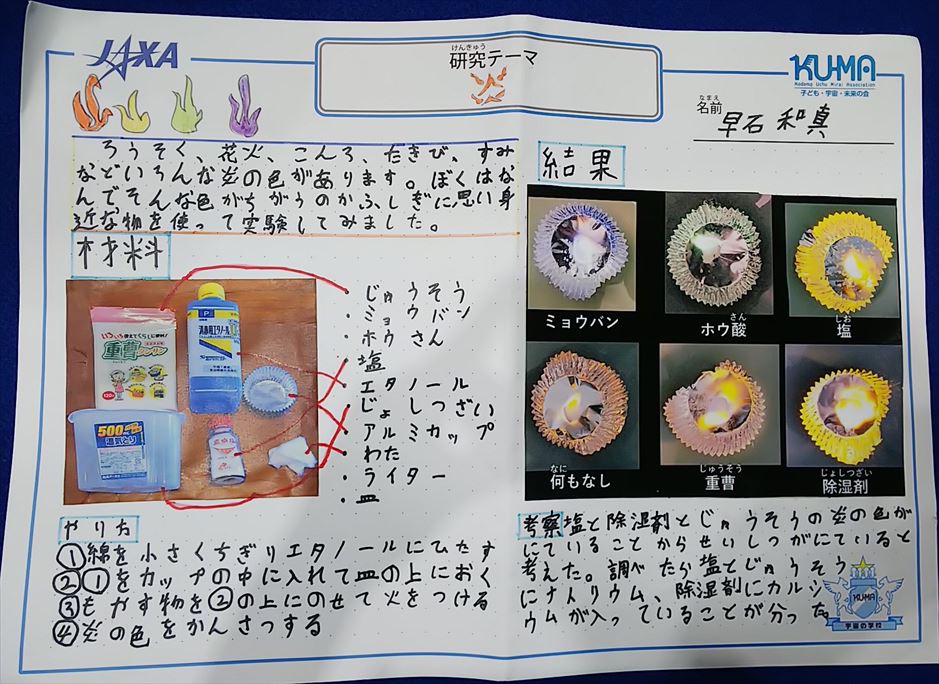 JAXA
けんきゅう
研究テーマ
炎
KU-MA
Kodomo Uchu Mirai Association
子ども・宇宙・未来の会
なまえ
名前 早石 和真
ろうそく、花火、こんろ、たきび、すみ
などいろんな炎の色があります。ぼくはな
んでそんな色がちがうのかふしぎに思い身
近な物を使って実験してみました。
材料
いろいろ使えてくらしに便利!
重曹
クリーン
P
消毒用エタノール
500
湿気とり
・じゅうそう
・ミョウバン
・ホウさん
・塩
・エタノール
・じょしつざい
・アルミカップ
・わた
・ライター
・皿
やり方
①綿を小さくちぎりエタノールにひたす
②①をカップの中に入れて皿の上におく
③もやす物を②の上にのせて火をつける
④炎の色をかんさつする
結果
ミョウバン
さん
ホウ酸
しお
塩
なに
何もなし
じゅうそう
重曹
じょしつざい
除湿剤
考察 塩と除湿剤とじゅうそうの炎の色が
にていることからせいしつがにていると
考えた。調べたら塩とじゅうそう
にナトリウム、除湿剤にカルシ
ウムが入っていることが分った。
KUMA
宇宙の学校